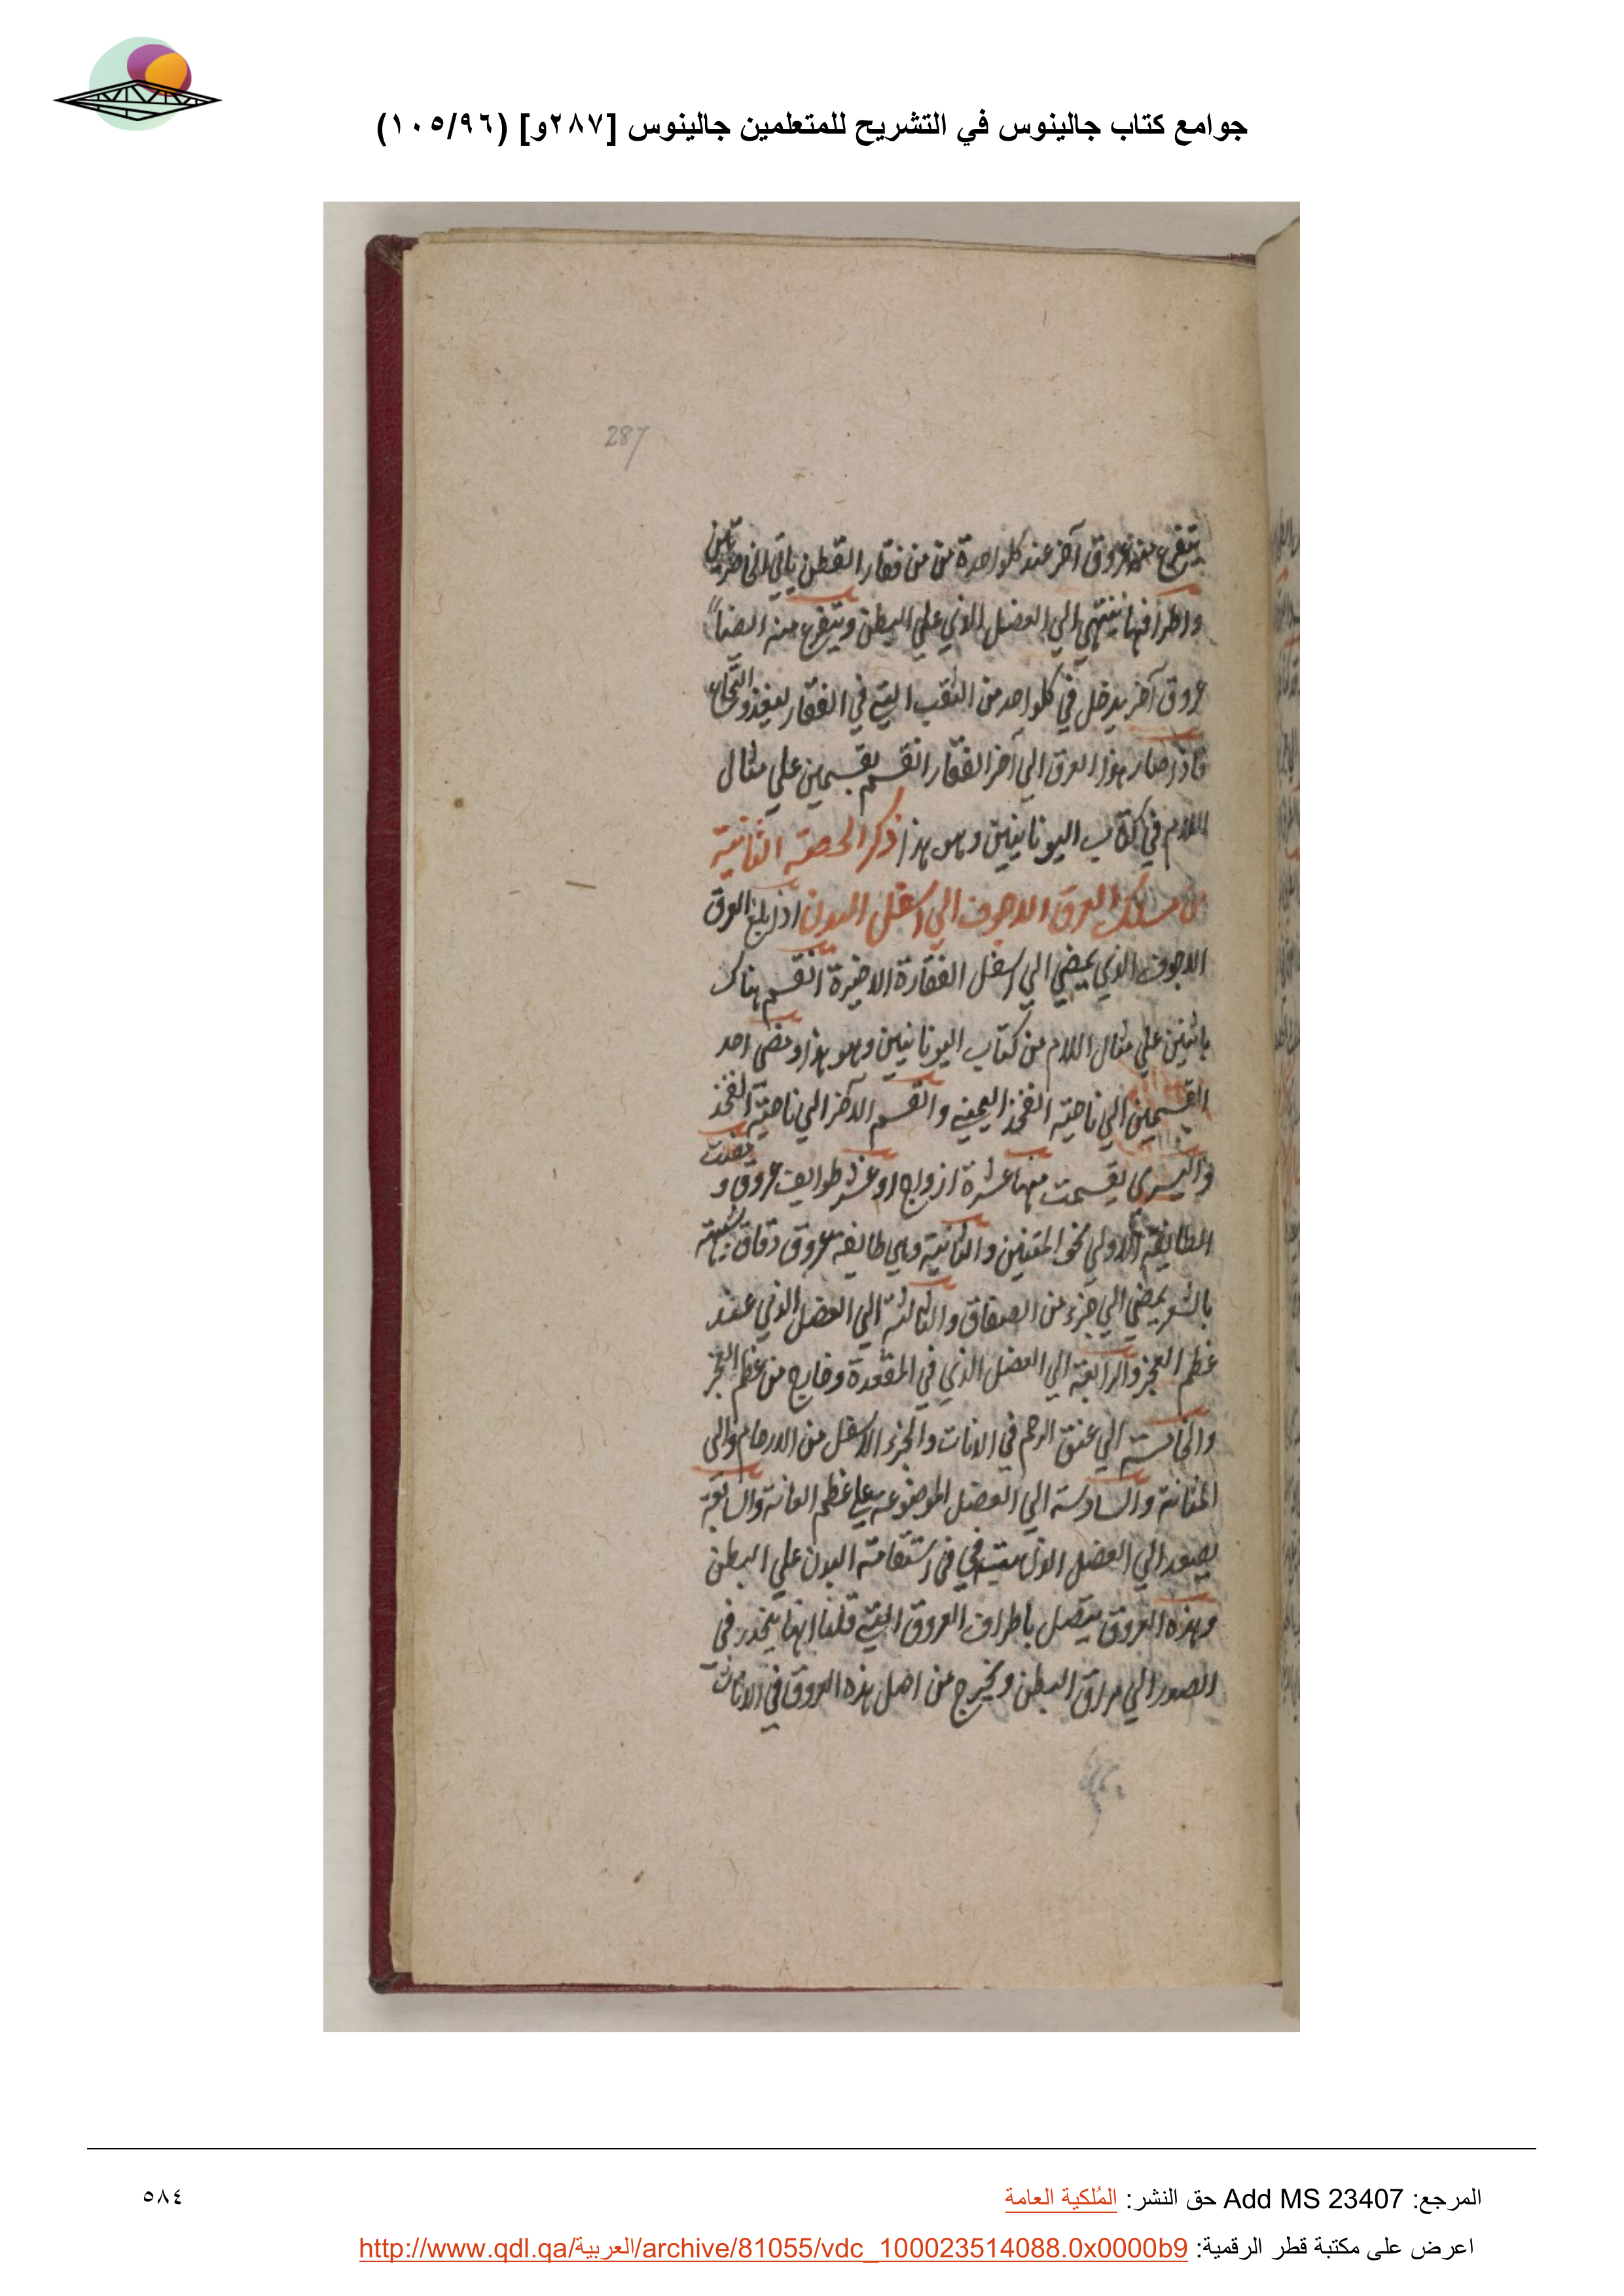 جوامع كتاب جالينوس في التشريح للمتعلمين جالينوس [٢٨٧و] (١٠٥/٩٦)
287
يتفرع منه عروق آخر عند كلواحدة من من فقار القطن ياتي الخاصرتين
واطرافها ينتهي الي العضل الذي علي البطن ويتفرع منه ايضا
عروق آخر يدخل في كلواحد من الثقب التي في الفقار ليغذو النخاع
فاذا صار هذا العرق الي آخر الفقار انقسم بقسمين علي مثال
اللام في كتاب اليونانيين وهو هذا ذكر الحصة الثانية
من مسلك العرق الاجوف الي اسفل البدن اذا بلغ العرق
الاجوف الذي يمضي الي اسفل الفقارة الاخيرة انقسم هناك
باثنين علي مثال اللام من كتاب اليونانيين وهو هذا ومضي احد
القسمين الي ناحية الفخذ اليمني والقسم الآخر الي ناحية الفخذ
واليسري يقسمت منها عشرة ازواج او عشر طوايف عروق و
الطايفة الاولي نحو المتنين والثانية وهي طايفة عروق دقاق شبيهة
بالشعر يمضي الي جزء من الصفاق والثالثة الي العضل الذي عند
عظم العجز والرابعة الي العضل الذي في المقعدة وخارج من عظم العجز
والخامسة الي عنق الرحم في الاناث والجزء الاسفل من الارحام والي
المثانة والسادسة الي العضل الموضوعة علي عظم العانة والسابعة
يصعد الي العضل الذاهبة في استقامة البدن علي البطن
وهذه العروق يتصل باطراف العروق التي قلنا انها ينحدر في
الصدر الي مراق البطن ويخرج من اصل هذه العروق في الاناث
المرجع: Add MS 23407 حق النشر: المُلكية العامة
٥٨٤
اعرض على مكتبة قطر الرقمية: http://www.qdl.qa/العربية/archive/81055/vdc_100023514088.0x0000b9